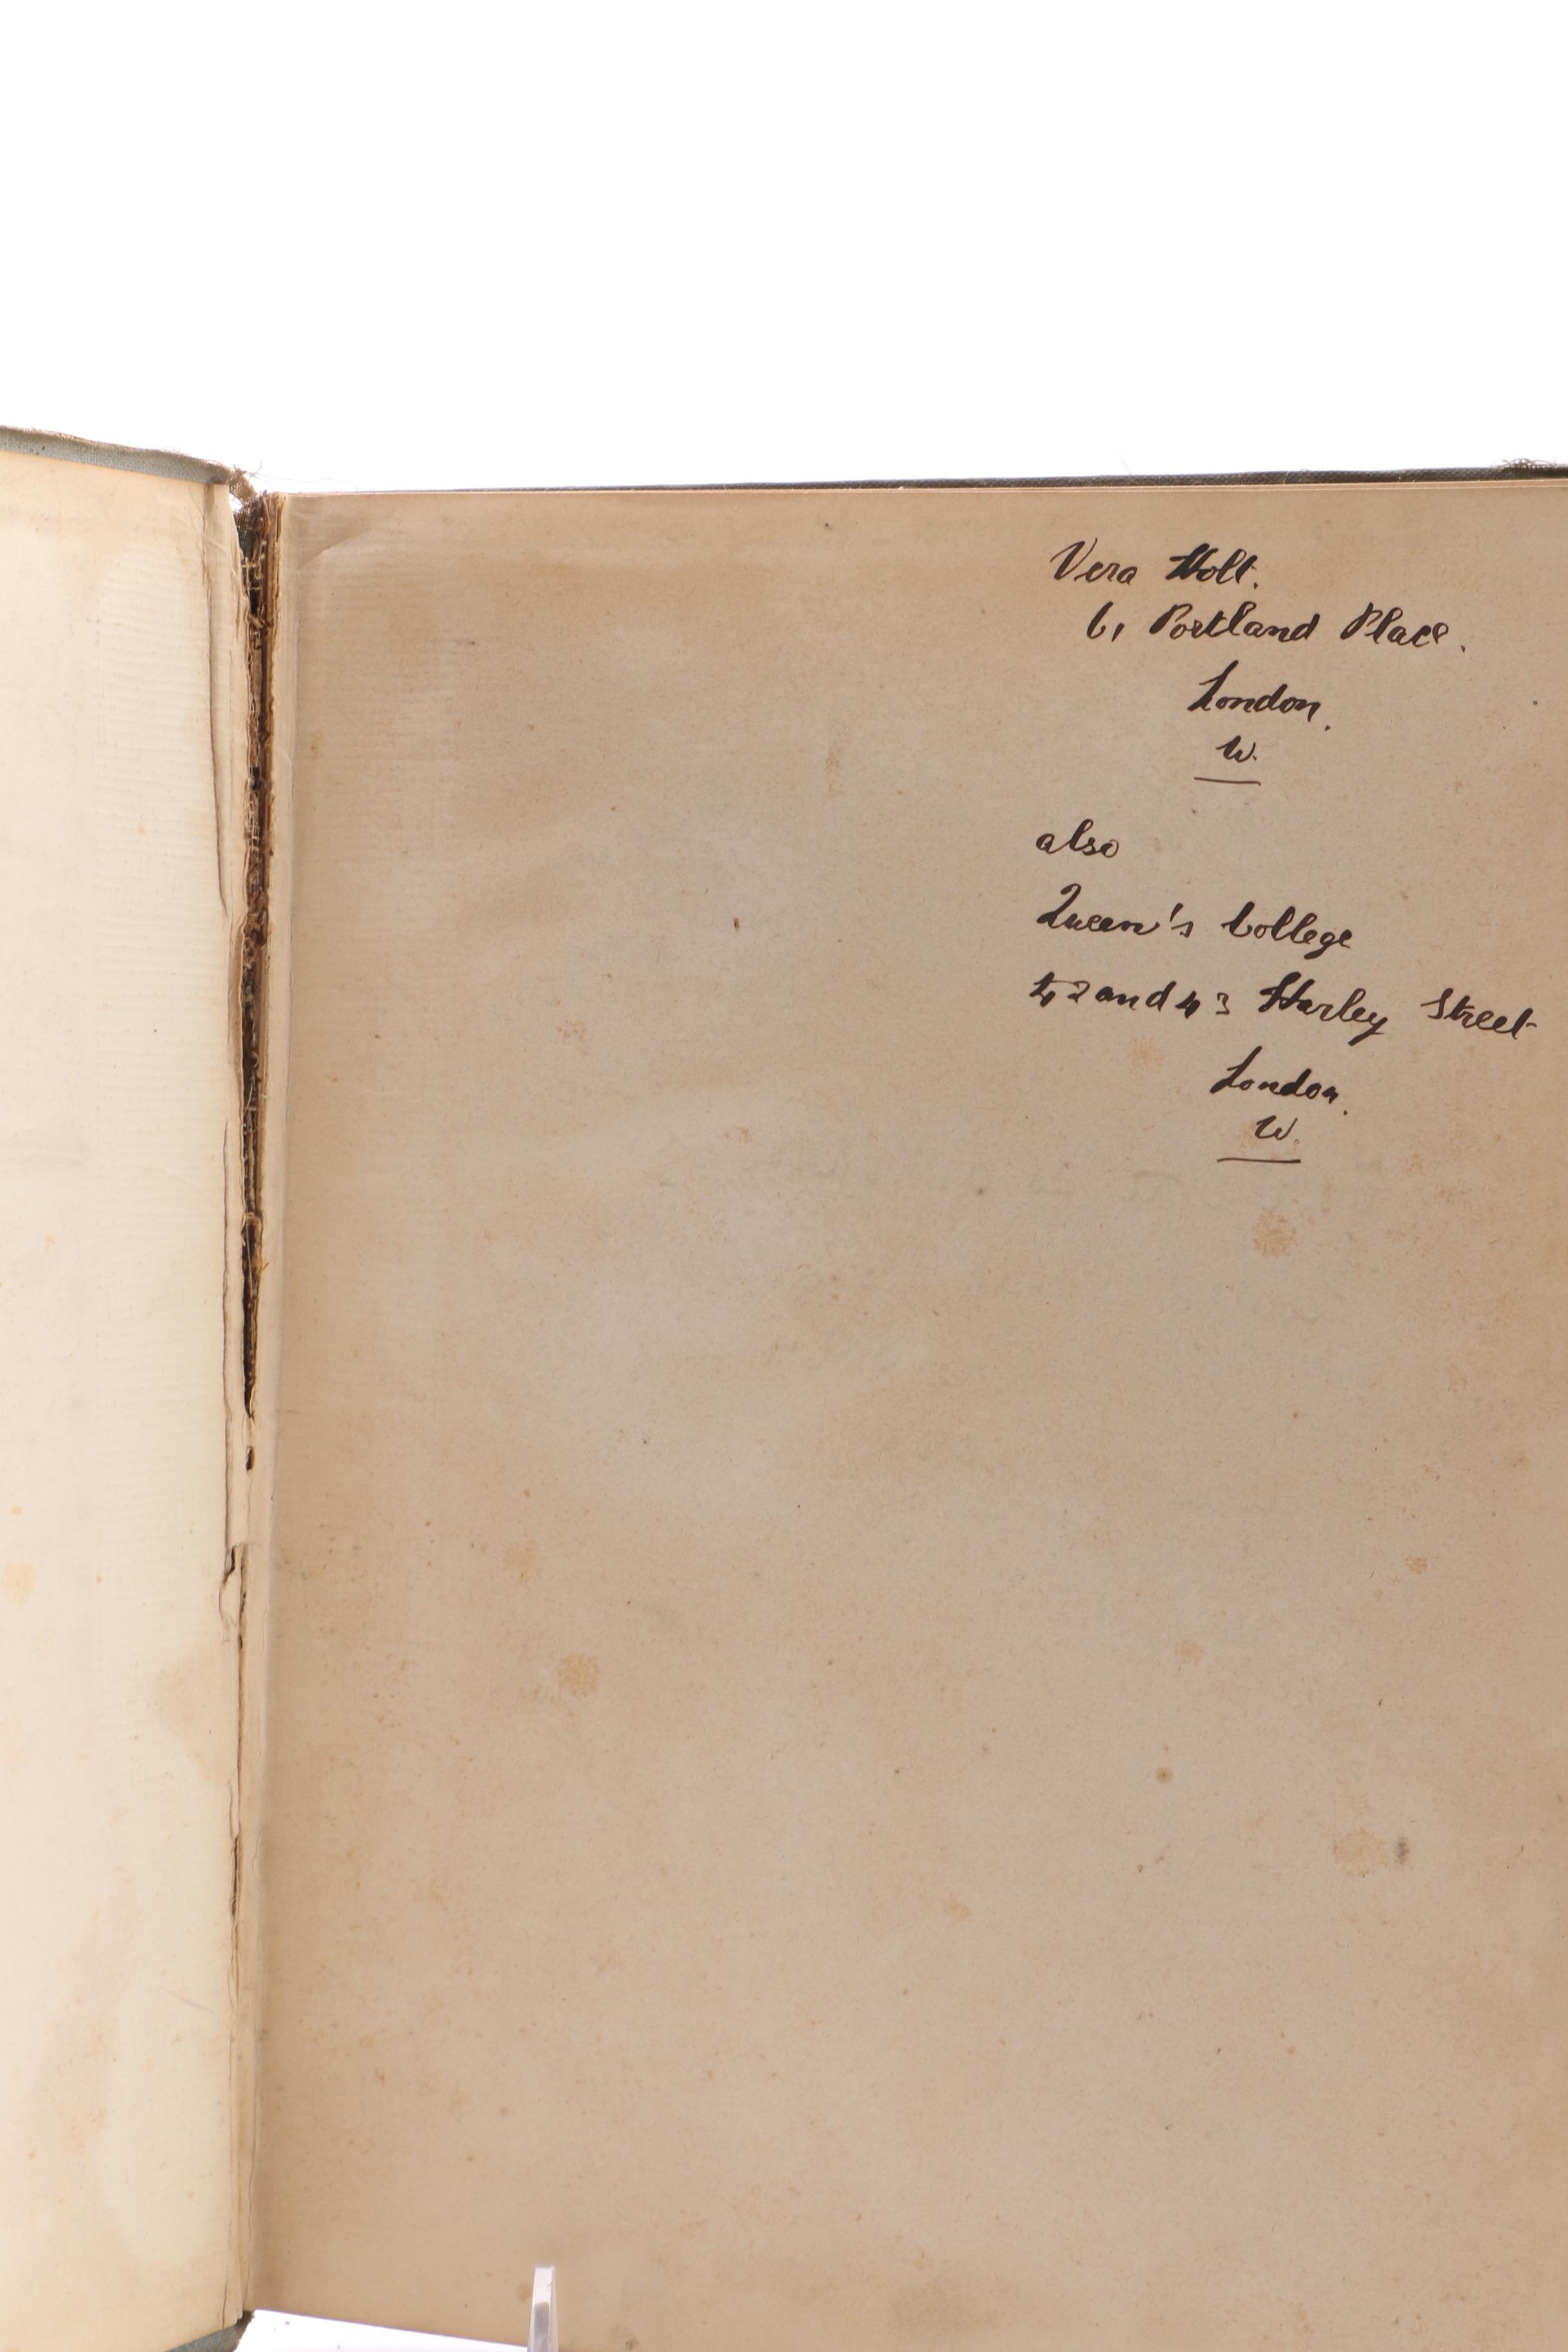 Vera Holt.
61 Portland Place.
London.
W.
also
Queen's College
42 and 43 Harley Street
London.
W.